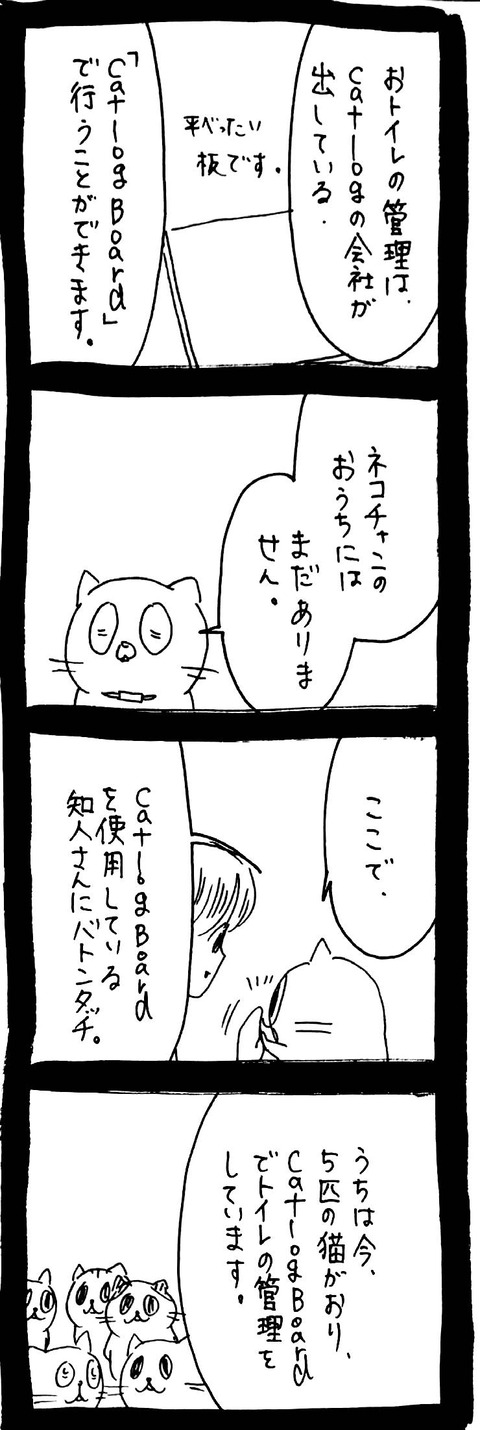 おトイレの管理は、
Catlogの会社が
出している.
平べったい
板です。
「Catlog Board」
で行うことができます。
ネコチャンの
おうちには
まだありま
せん。
ここで、
Catlog Board
を使用している
知人さんにバトンタッチ。
うちは今、
5匹の猫がおり、
Catlog Board
でトイレの管理を
しています。